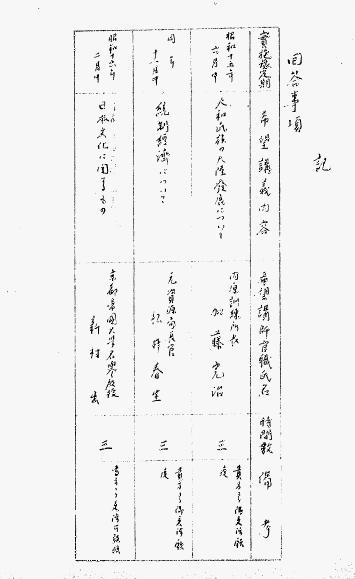 記
回答事項
實施豫定期 希望講義内容 希望講師官職氏名 時間数 備考
昭和十五年
六月中
大和民族の大陸發展について
内原訓練所長
加藤完治
三
貴方ヨリ御交渉願
度
同年
十一月中
統制經濟について
元資源局長官
松井春生
三
貴方ヨリ御交渉願
度
昭和十六年
二月中
日本文化に関するもの
京都帝國大学名譽教授
新村出
三